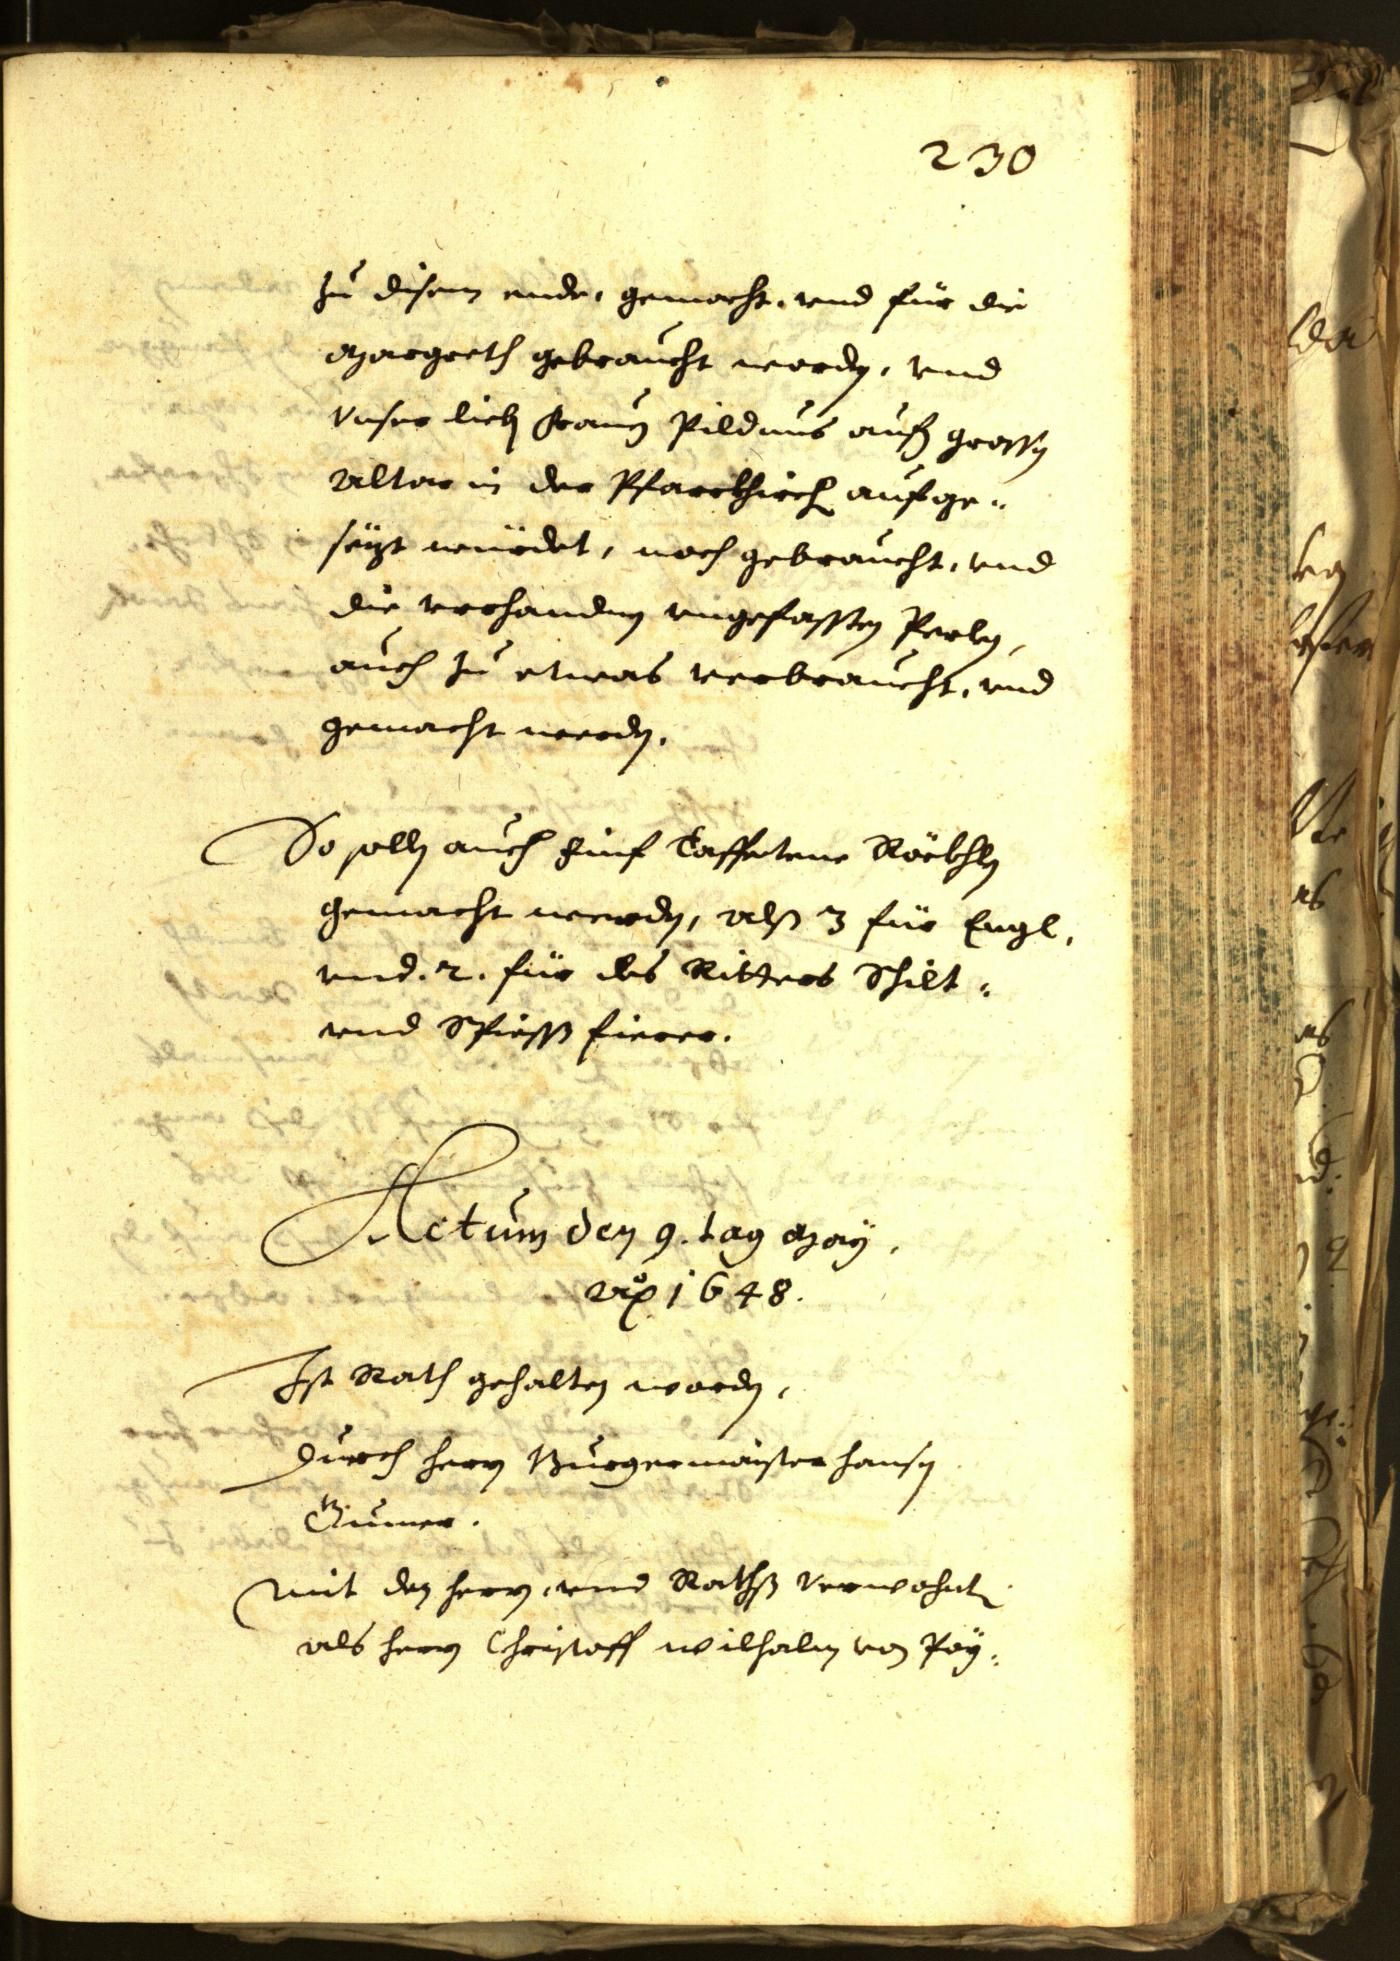 230
zu disem ende, gemacht, vnd für die
Margreth gebraucht worden, vnd
Vnser lieben Frauen Pildnus aufm grossen
Altar in der Pfarrkhirch aufge-
sezt würdet, noch gebraucht, vnd
die verhandnen eingefassten Perlen,
auch zu etwas verbraucht, vnd
gemacht werden.
So sollen auch fünf Taffetene Röckhlen
gemacht werden, alß 3 für Engl,
vnd .2. für des Ritters Schilt-
vnd Spiessfierer.
Actum den 9. tag May,
Ao 1648.
Ist Rath gehalten worden,
Durch herrn Burgermaister Hansen
Gumer.
mit den herrn, vnd Raths Verwohnte
als herrn Christoff wilhalm von Pay-